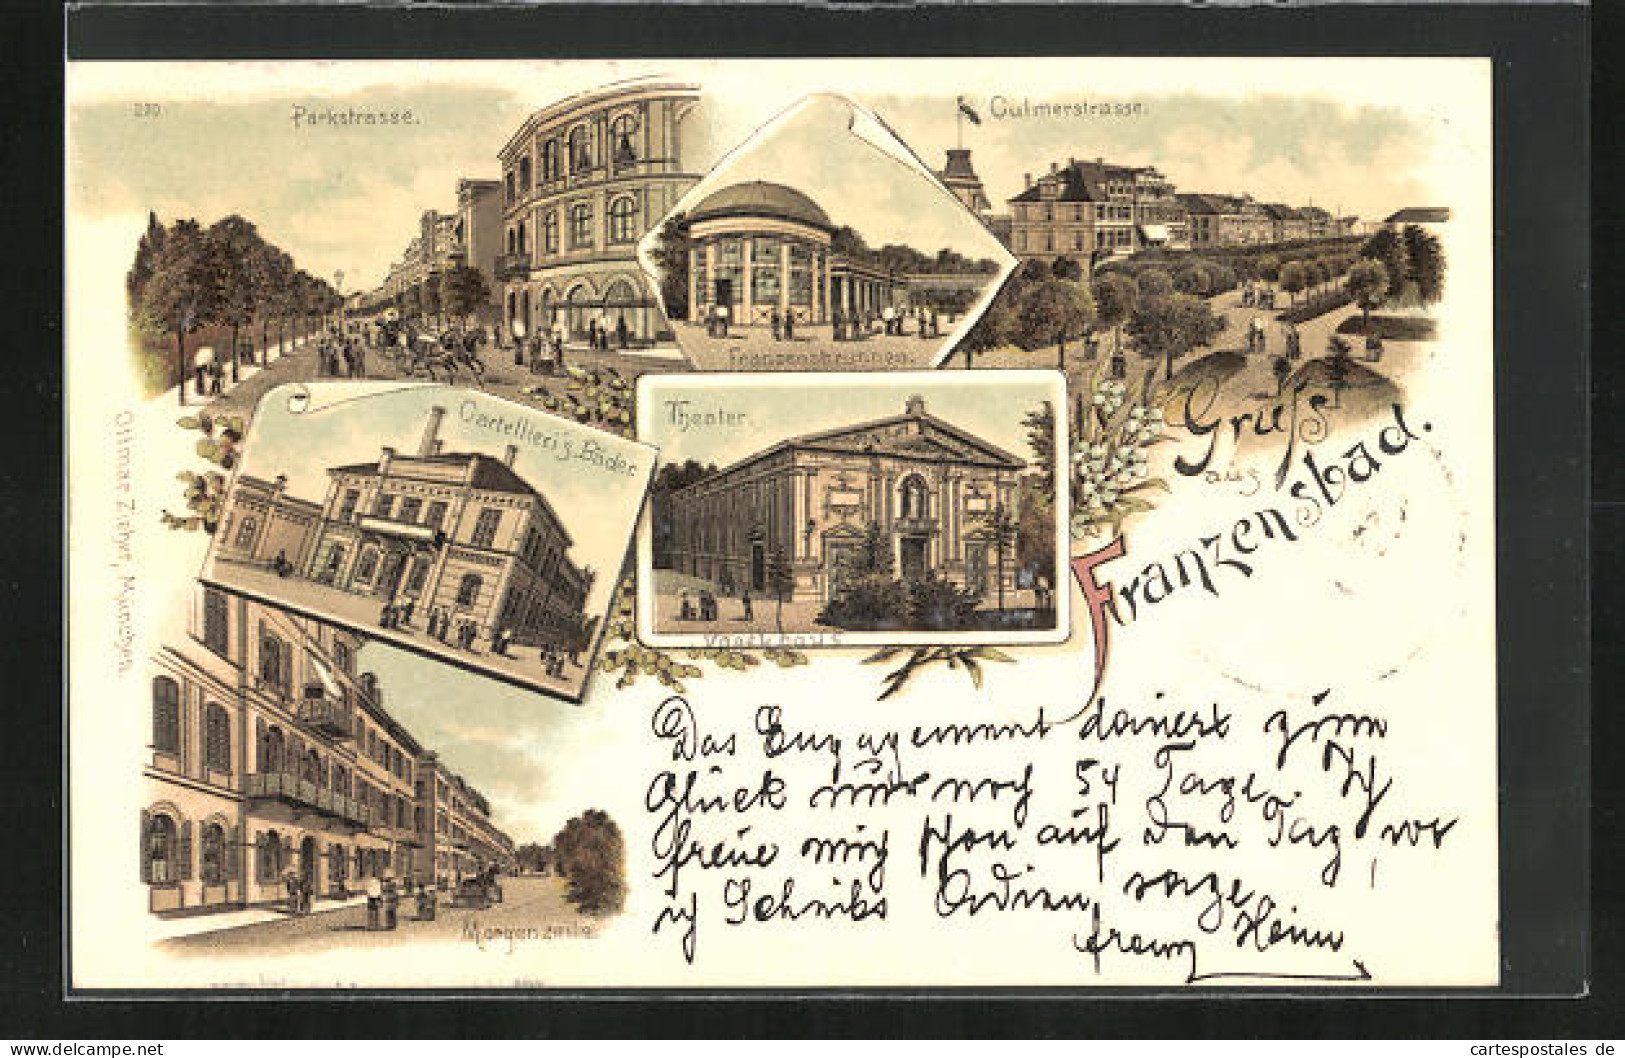 220
Parkstrasse.
Culmerstrasse.
Franzensbrunnen.
Cartellieri's Bäder
Theater.
Gruss
aus
Franzensbad.
Ottmar Zieher, München.
Morgenzeile.
Das Engagement dauert zum
Glück nur noch 54 Tage. Ich
freue mich schon auf den Tag wo
ich Adieu sage
Heim
delcampe.net
cartespostales de